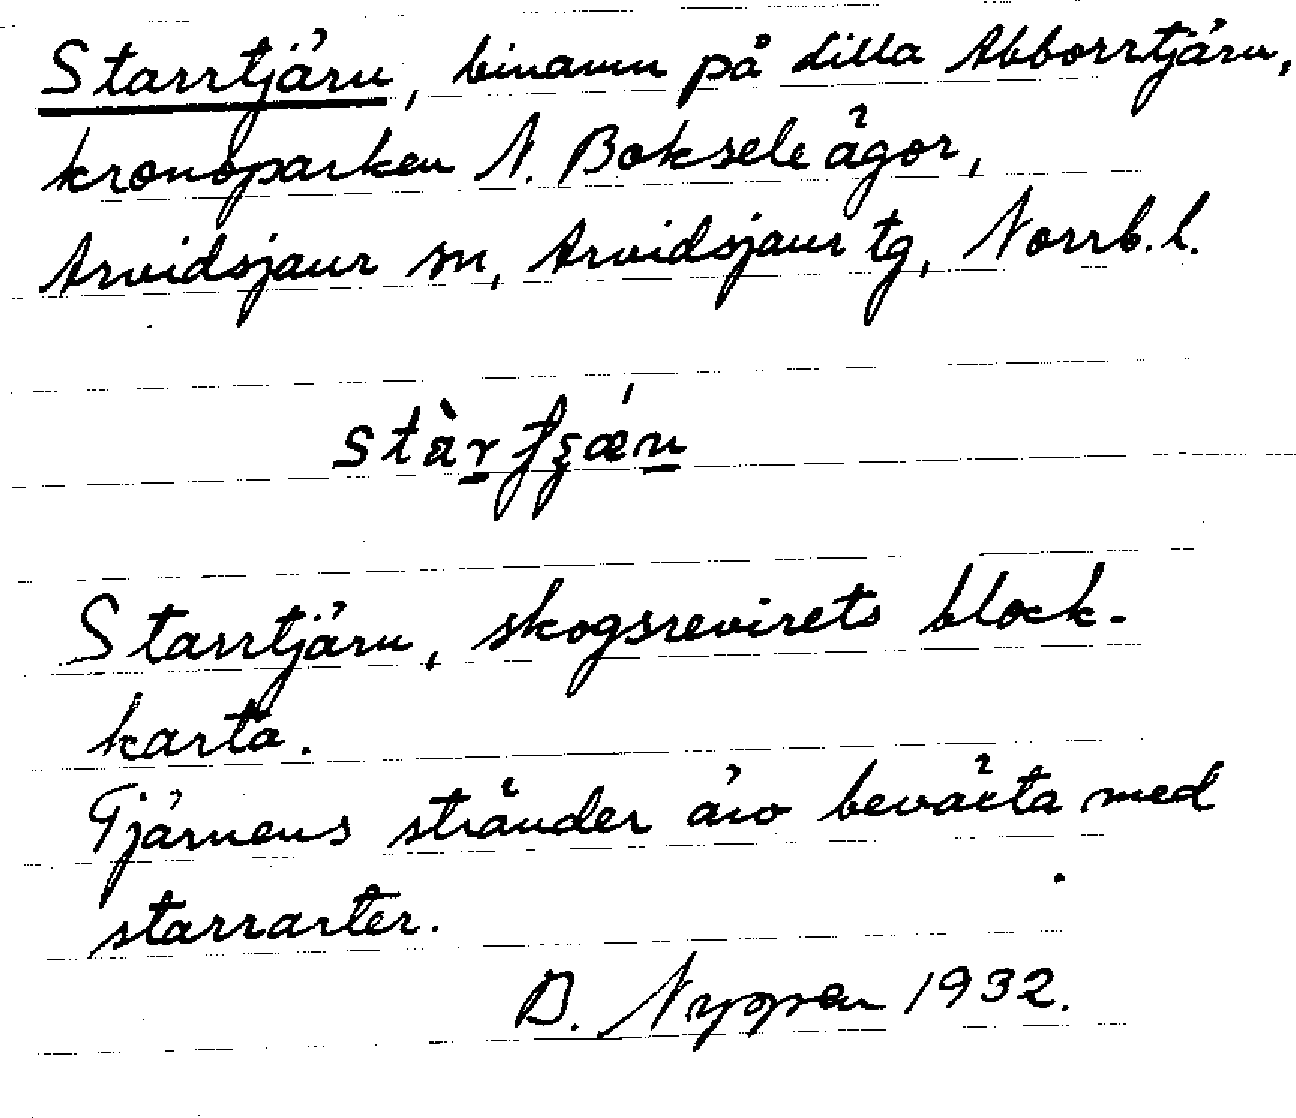 Starrtjärn, binamn på Lilla Abborrtjärn,
kronoparken N. Boksele ägor,
Arvidsjaur sn, Arvidsjaur tg, Norrb. l.
Starrtjärn, skogsrevirets block-
karta.
Tjärnens stränder äro beväxta med
starrarter.
B. Nyman 1932.